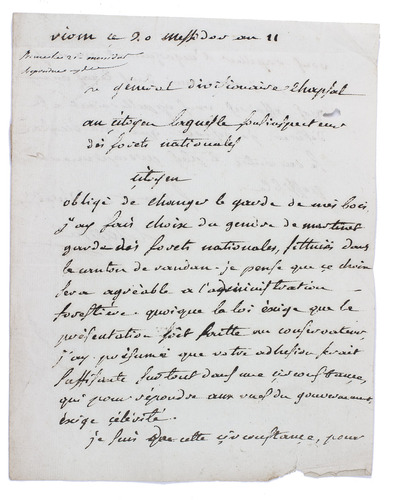 riom ce 20 messidor an 11
général divisionnaire Chapsal
au citoyen sous inspecteur
des forets nationales
Citoyen
obligé de changer le garde de mes bois,
j'ay fais choix du de
garde des forets nationales, scittuées dans
le canton de randan. je pense que ce choix
sera agréable a l'administration
forestière. quoique la loi exige que la
présentation soit faitte au conservateur
j'ay présumé que votre adhésion serait
suffisante surtout dans une circonstance,
qui pour répondre aux vues du gouvernement,
exige célérité.
je suis que cette circonstance, pour